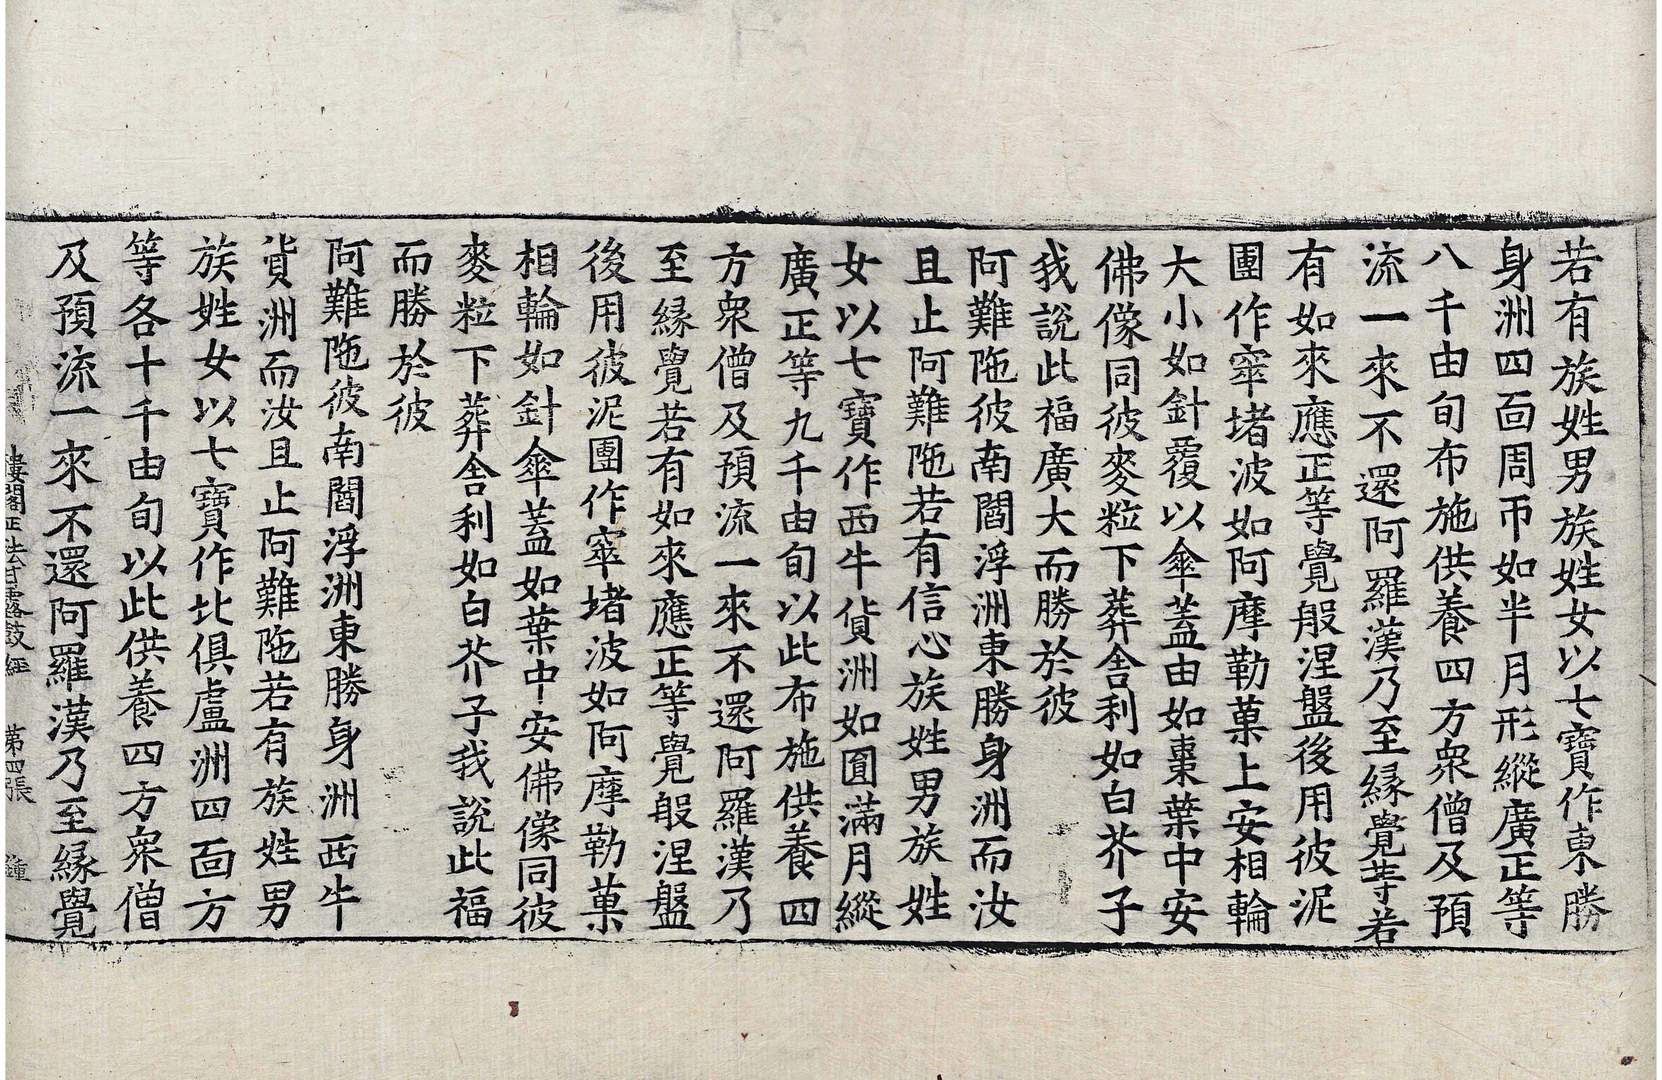 若有族姓男族姓女以七寶作東勝
身洲四面周帀如半月形縱廣正等
八千由旬布施供養四方衆僧及預
流一來不還阿羅漢乃至緣覺等若
有如來應正等覺般涅盤後用彼泥
團作窣堵波如阿摩勒菓上安相輪
大小如針覆以傘蓋由如棗葉中安
佛像同彼麥粒下葬舍利如白芥子
我說此福廣大而勝於彼
阿難陁彼南閻浮洲東勝身洲而汝
且止阿難陁若有信心族姓男族姓
女以七寶作西牛貨洲如圓滿月縱
廣正等九千由旬以此布施供養四
方衆僧及預流一來不還阿羅漢乃
至緣覺若有如來應正等覺般涅盤
後用彼泥團作窣堵波如阿摩勒菓
相輪如針傘蓋如葉中安佛像同彼
麥粒下葬舍利如白芥子我說此福
而勝於彼
阿難陁彼南閻浮洲東勝身洲西牛
貨洲而汝且止阿難陁若有族姓男
族姓女以七寶作北俱盧洲四面方
等各十千由旬以此供養四方衆僧
及預流一來不還阿羅漢乃至緣覺
樓閣正法甘露鼓經 第四張 鍾